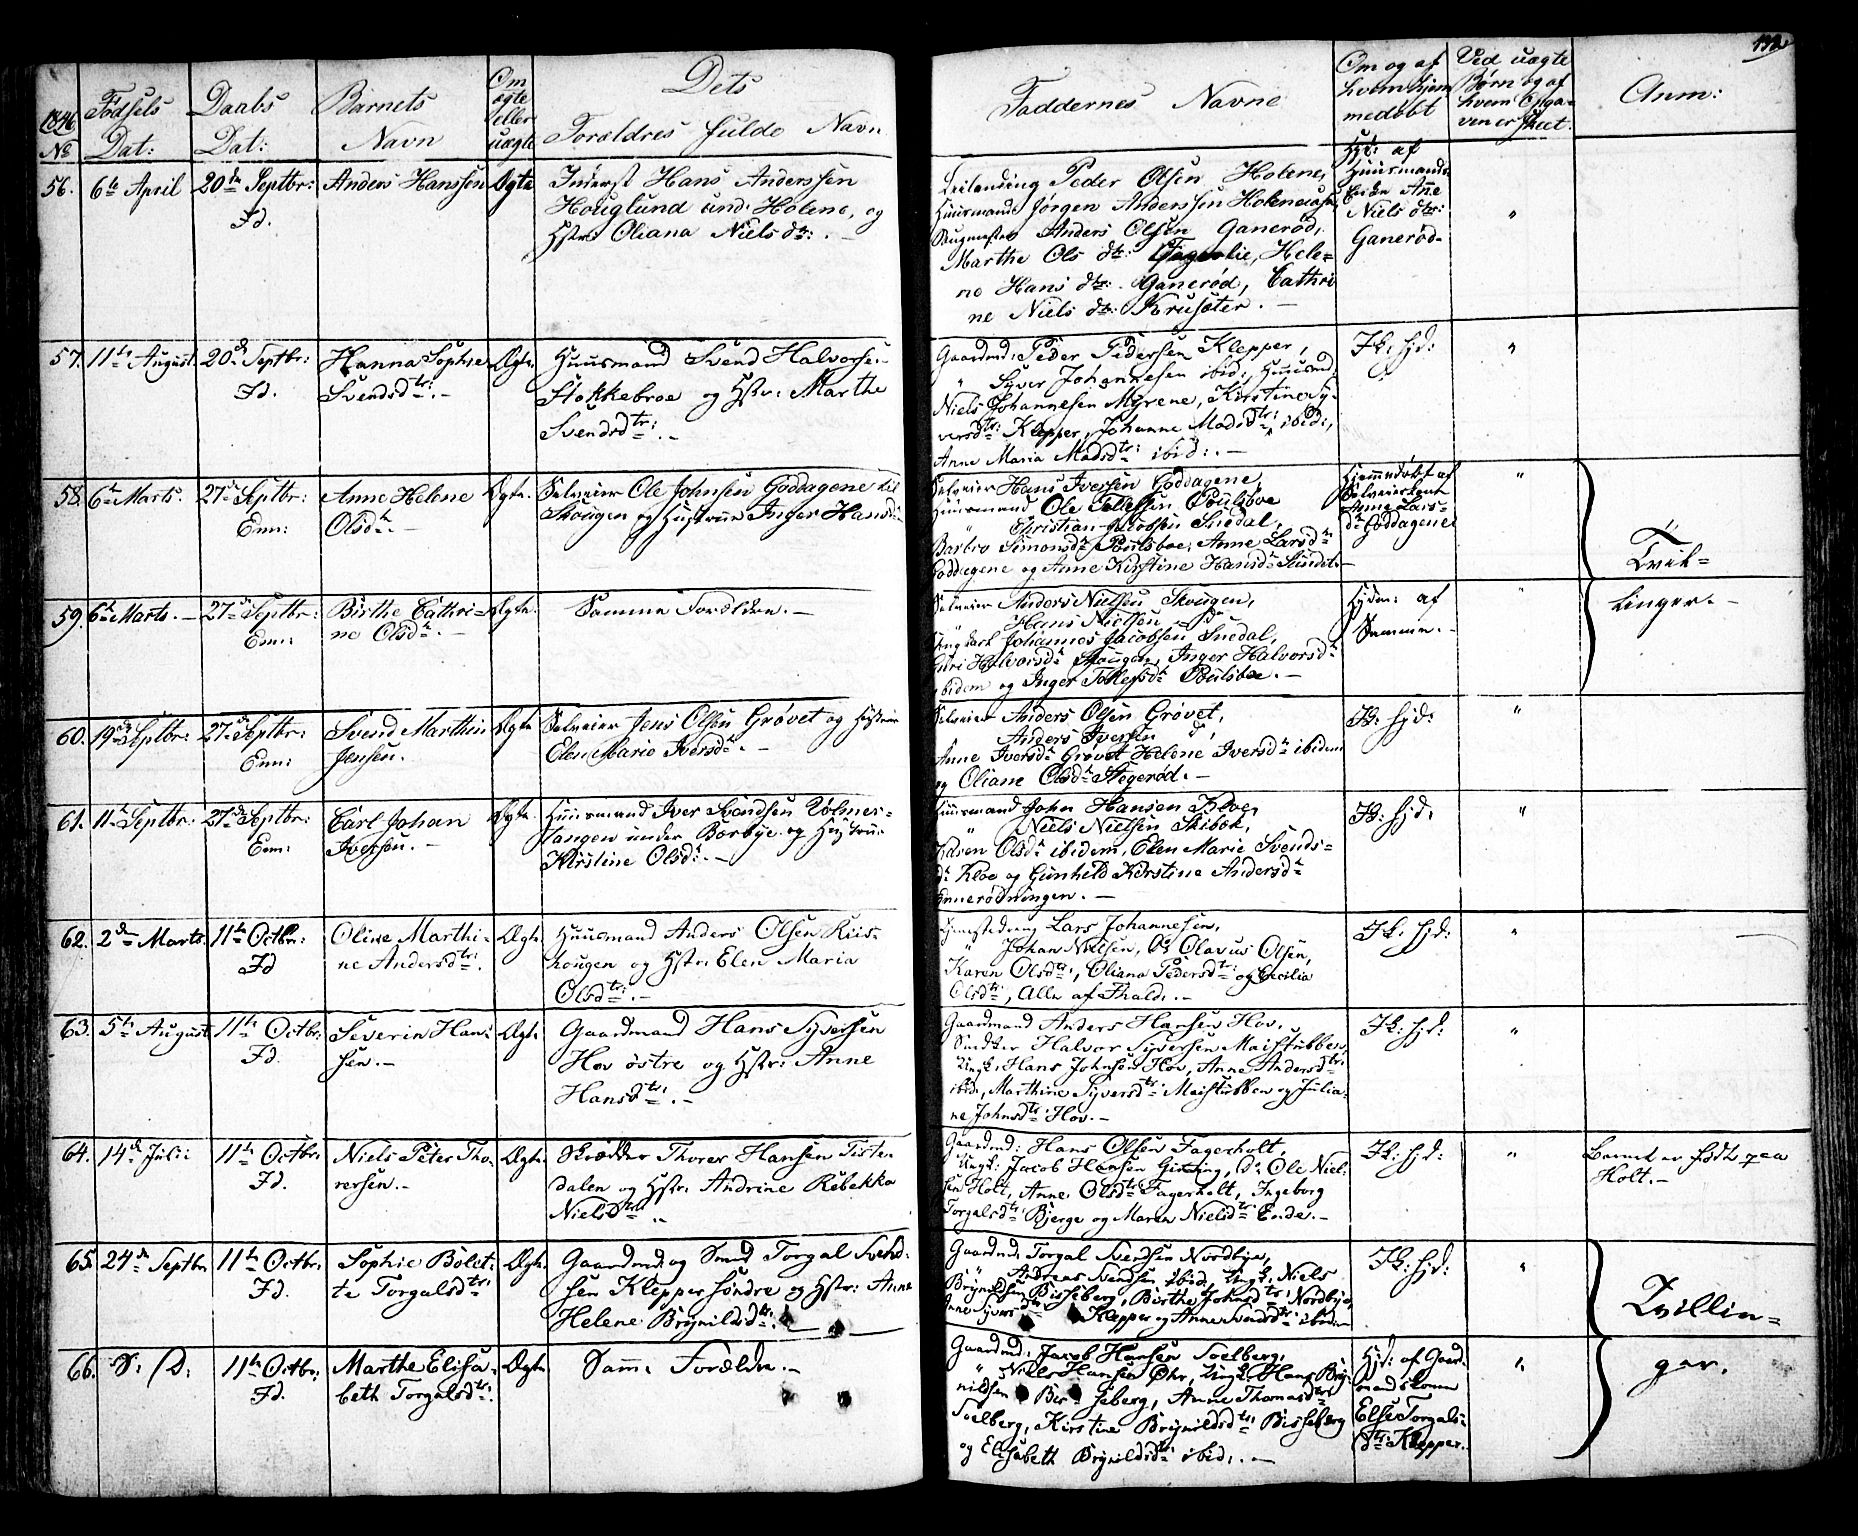 1846
No
Fødsels
Dat:
Daabs
Dat:
Barnets
Navn
Om
ægte
eller
uægte
Dets
Forældres fulde Navn
Faddernes Navne
Om og af
hvem hjem
medøbt
Ved uægte
Børn og af
hvem Opga-
ven er skeet.
Anm:
56. 6te April 20de Septbr: Fd. Anders Hanssen Ægte
Inderst Hans Anderssen
Houglund und: Holene, og
Hstr: Oliana Nielsdtr: .-
Leilending Peder Olsen Holene,
Huusmand Jørgen Anderssen
Anders Olsen Ganerød,
Marthe Olsdtr: Hele-
ne Hansdtr: Ganerød, Cathri
ne Nielsdtr: Korusæter. -
Hjd: af
Huusmands-
Ane
Nielsdtr:
Ganerød-
"
57. 11te August 20de Septbr: Fd. Hanna Sophie
Svendsdtr: .- Ægte.
Huusmand Svend Halvorse-
Stokkebroe og Hstr: Marthe
Svendsdtr: .-
Gaardmd: Peder Pedersen Klepper,
" Syver Johannesen ibid:, Huusmd:
Niels Johannesen Myrene, Kirstine Sy-
versdtr: Klepper, Johanne Madsdtr: ibid:,
Anne Maria Madsdtr: ibid: .-
Ik: hjd:
"
58. 6te Marts. 27de Septbr: Enn: Anne Helene
Olsdtr. - Ægte.
Selveier Ole Johnsen Goddagene
Skougen og Hustrue Inger Hansdr
Selveier Hans Iversen Goddagene,
Huusmand Ole Tollefsen Poulsboe
" Christian Jacobsen Snedal,
Barbro Simonsdr Poulsboe, Anne Larsdr
Goddagene og Anne Kirstine Hansdr
Hjemmedøbt af
Selveierkone
Anne Lars-
dr Goddagene
"
59. 6te Marts. - 27de Septbr: Enn: Birthe Cathri-
ne Olsdr. - Ægte.
Samme Forældre. -
Selveier Anders Nielsen Skougen,
" Hans Nielsen do
Ungkarl Johannes Jacobsen Snedal,
Guri Halvorsdr Skougen, Inger Halvorsdr
ibidem og Inger Tollefsdr Poulsboe. -
Hjdm: af
Samme. -
"
Tvil-
linger. -
60. 19de Septbr: 27de Septbr: Enn: Svend Marthin
Jensen. Ægte
Selveier Jens Olsen Grøvet og Hustrue
Elen Marie Iversdr. -
Selveier Anders Olsen Grøvet,
Anders Iversen do,
Anne Iversdr Grøvet Helene Iversdr ibidem
og Oliane Olsdr Hegerød. -
Ik: hjd:
"
61. 11te Septbr: 27de Septbr: Enn: Carl Johan
Iversen. - Ægte.
Huusmand Iver Svendsen Holmes-
tangen under Borbye og Hustrue
Kirstine Olsdr. -
Huusmand John Hansen Kloe,
" Niels Nielsen Skibok,
Karen Olsdr ibidem, Elen Marie Svends-
dr Kloe og Gunhild Kirstine Andersdr
Ennerødningen. -
Ik: hjd:
"
62. 2de Marts. 11te Octbr: Fd Oline Marthi-
ne Andersdtr: Ægte
Huusmand Anders Olsen Kiis-
kougen og Hstr: Elen Maria
Olsdtr: .-
Lars Johannesen,
" Johan Nielsen, do Olavus Olsen,
Karen Olsdtr:, Oliana Pedersdtr: og Cecilia
Olsdtr:, Alle af Hald: .-
Ik: hjd:
"
63. 5te August 11te Octbr: Fd. Severin Han-
sen. - Ægte
Gaardmand Hans Syversen
Hov østre og Hstr: Anne
Hansdtr: .-
Gaardmand Anders Hansen Hov,
Halvor Syversen Maistubben,
Ungk: Hans Johnsen Hov, Anne Andersdtr:
ibid:, Marthine Syversdtr: Maistubben og Julia-
ne Johnsdtr: Hov. -
Ik: hjd:
"
64. 14de Julii 11te Octbr: Fd. Niels Peter Tho-
rersen. - Ægte
Skrædder Thorer Hansen Tiste-
dalen og Hstr: Andrine Rebekka
Nielsdtr:
Gaardmd: Hans Olsen Fagerholt,
Ungk: Jacob Hansen Gieting, do Ole Niel-
sen Holt, Anne Olsdtr: Fagerholt, Ingeborg
Torgalsdtr: Bjerge og Maren Nielsdtr: Ende. -
Ik: hjd:
"
Barnet er født paa
Holt. -
65. 24de Septbr 11te Octbr: Fd. Sophie Bolet-
te Torgalsdtr: Ægte
Gaardmd og Smed Torgal Svend-
sen Klepper søndre og Hstr: Anne
Helene Brynildsdtr:
Gaardmd: Torgal Svendsen Nordbye,
" Andreas Svendsen ibid:, Ungk: Niels
Brynildsen Bisseberg, Birthe Johnsdtr: Nordbye,
Anne Syversdtr: Klepper og Anne Svendsdtr: ibid: -
Ik: hjd:
"
Tvillin-
ger.
66. S: D: 11te Octbr: Fd. Marthe Elisa-
beth Torgalsdtr: Ægte
Sam: Forældre. -
Gaardmd: Jacob Hansen Soelberg,
" Niels Hansen Øhr, Ungk: Hans Bry-
nildsen Bisseberg, Anne Thomasdtr
Soelberg, Kirstine Brynildsdtr: Bisseberg
og Elisabeth Brynildsdtr ibid: .-
Hjd: af Gaard-
mandskone
Else Torgals-
dtr: Klepper.
"